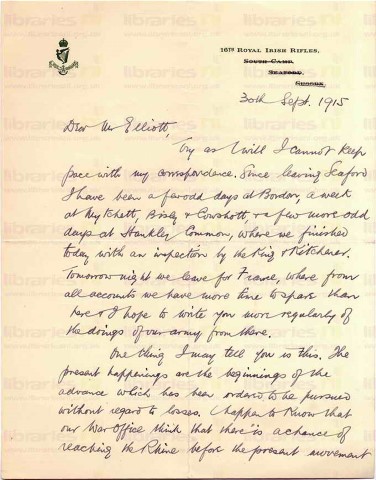 16TH ROYAL IRISH RIFLES.
SOUTH CAMP,
SEAFORD,
SUSSEX
30th Sept. 1915
Dear Mr Elliott,
Try as I will I cannot keep
pace with my correspondence. Since leaving Seaford
I have been a few odd days at Bordon, a week
at Mytchett, Bisley & Cowshott, & a few more odd
days at Hankley Common, where we finished
today with an inspection by the King & Kitchener.
Tomorrow night we leave for France, where from
all accounts we have more time to spare than
here & I hope to write you more regularly of
the doings of our army from there.
One thing I may tell you is this. The
present happenings are the beginnings of the
advance which has been ordered to be pursued
without regard to losses. I happen to know that
our War Office think that there is a chance of
reaching the Rhine before the present movement